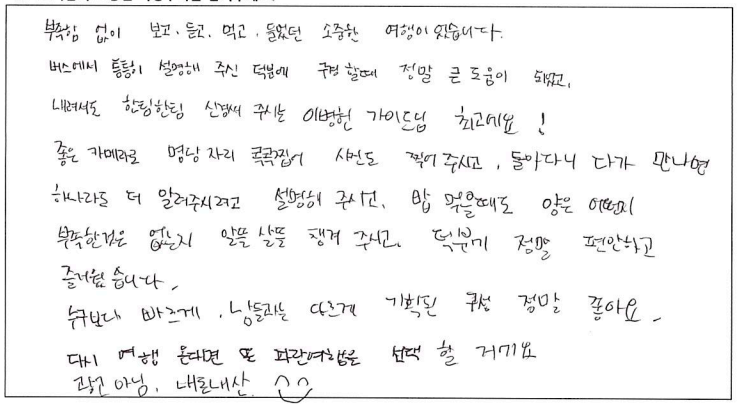 부족함 없이 보고, 듣고, 먹고, 들었던 소중한 여행이였습니다.
버스에서 틈틈히 설명해 주신 덕분에 구경 할때 정말 큰 도움이 되었고,
내려서도 한팀한팀 신경써 주시는 이병헌 가이드님 최고에요 !
좋은 카메라로 명당 자리 콕콕찝어 사진도 찍어 주시고, 돌아다니다가 만나면
하나라도 더 알려주시려고 설명해 주시고, 밥 먹을때도 양은 어떤지
부족한것은 없는지 알뜰 살뜰 챙겨 주시고, 덕분에 정말 편안하고
즐거웠습니다.
누구보다 빠르게, 남들과는 다르게 기획된 구성 정말 좋아요.
다시 여행 온다면 또 파란여행을 선택 할 거에요
광고 아님, 내돈내산.